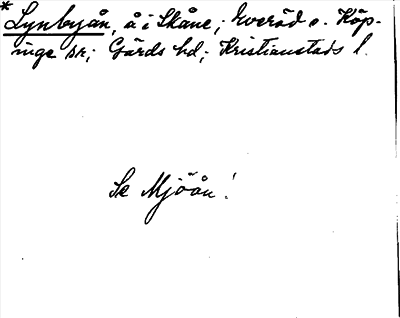 * Lynbyån, å i Skåne; Everöd o. Köp-
inge sn; Gärds hd; Kristianstads l.
Se Mjöån!